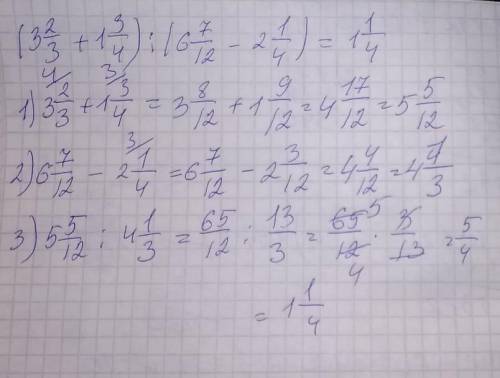 (3 2/3 + 1 3/4) : (6 7/12 - 2 1/4) = 1 1/4
1) 3 2/3 4/ + 1 3/4 3/ = 3 8/12 + 1 9/12 = 4 17/12 = 5 5/12
2) 6 7/12 - 2 1/4 3/ = 6 7/12 - 2 3/12 = 4 4/12 = 4 1/3
3) 5 5/12 : 4 1/3 = 65/12 : 13/3 = 65 5/12 4 · 3/13 = 5/4
= 1 1/4